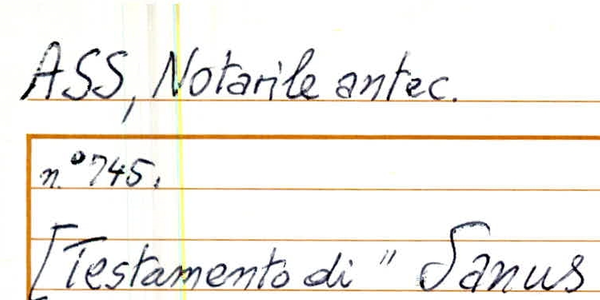 ASS, Notarile antec.
n.° 745.
[Testamento di " Sanus